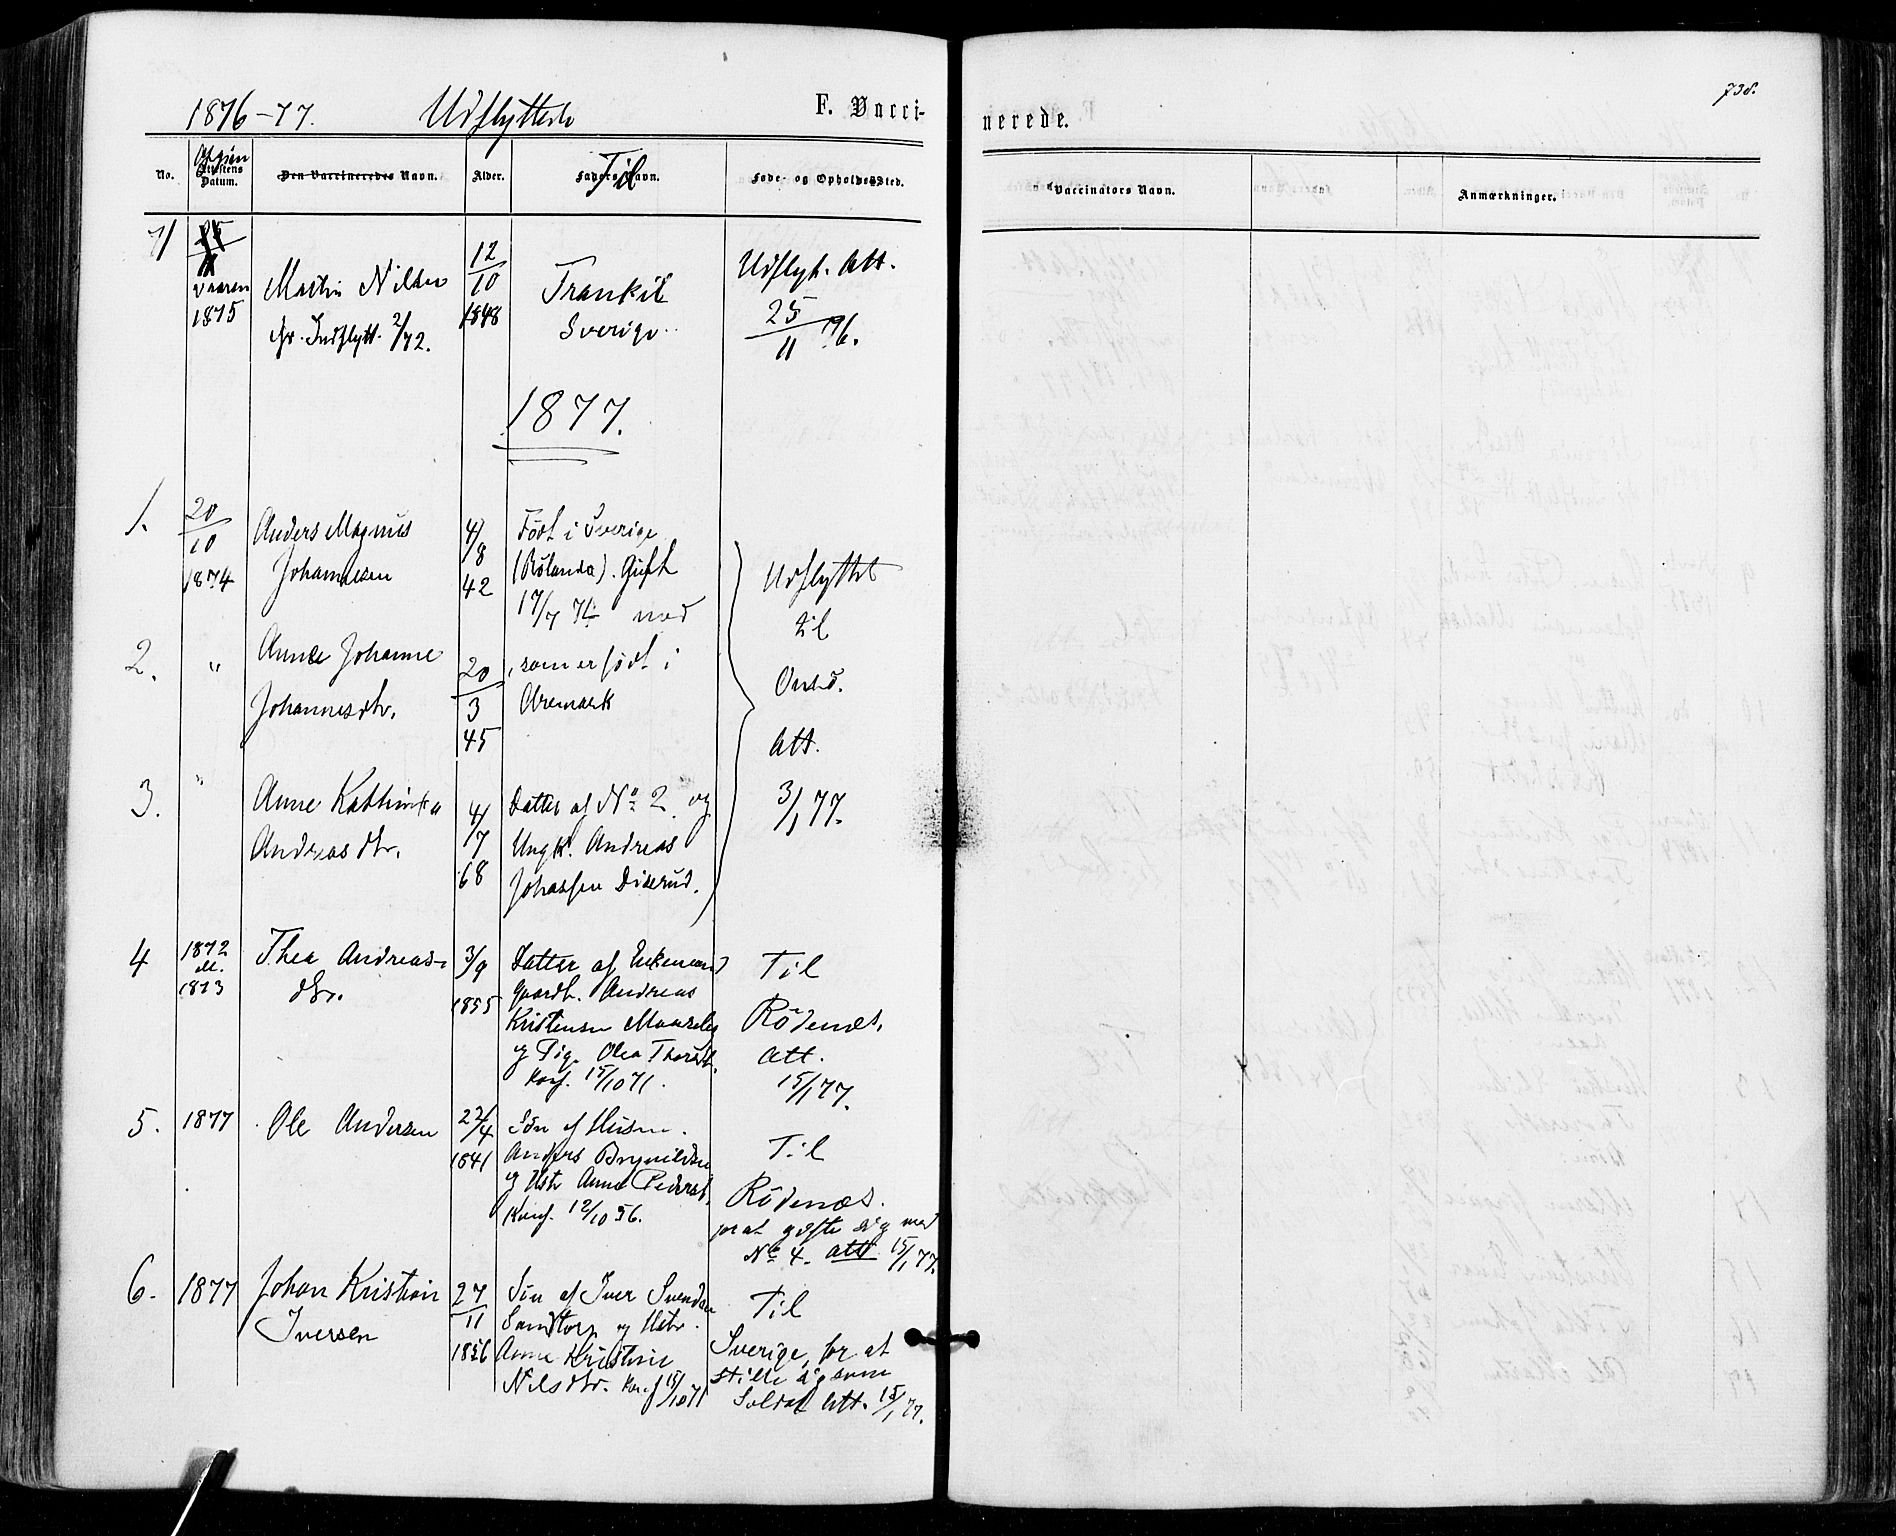 738.
1876-77. Udflyttede F. Vacci-
nerede.
No. Attestens Datum. Den Vaccineredes Navn. Alder. Faders Navn. Til Føde- og Opholdssted.
Vaccinators Navn. Anmærkninger.
71 Vaaren 1875
Martin Nilsen
Indflytt. 2/72.
12/10 1848
Trankil
Sverige.
Udflyt. Att.
25/11 76.
1877.
1. 20/10 1874
Anders Magnus
Johannesen
4/8 42
Født i Sverige
(Rølanda). Gift
17/7 74 med
2. "
Anne Johanne
Johannesdtr.
20/3 45
, som er født i
Aremark
3. "
Anne Kathinka
Andreasdtr.
4/7 68
Datter af No 2 og
Ungk. Andreas
Johassen Diserud.
Udflyttet
til
Onsø.
Att.
3/1 77.
4 1872 el. 1873
Thea Andreas-
dtr.
3/9 1855
Datter af Enkemand
Gaardb. Andreas
Kristensen
og Pige Olea Thorst.
Konf. 15/10 71.
Til
Rødenæs.
Att.
15/1 77.
5. 1877
Ole Andersen
22/4 1841
Søn af Husm.
Anders Brynildsen
og Hstr Anne Pedersd.
Konf. 12/10 56.
Til
Rødenæs.
for at gifte sig med
No 4. Att 15/1 77.
6. 1877
Johan Kristian
Iversen
27/11 1856
Søn af Iver Svendsen
Sandtorp og Hstr.
Anne Kristine
Nilsdtr. Konf 15/10 71
Til
Sverige, for at
stille sig som
Soldat Att. 15/1 77.